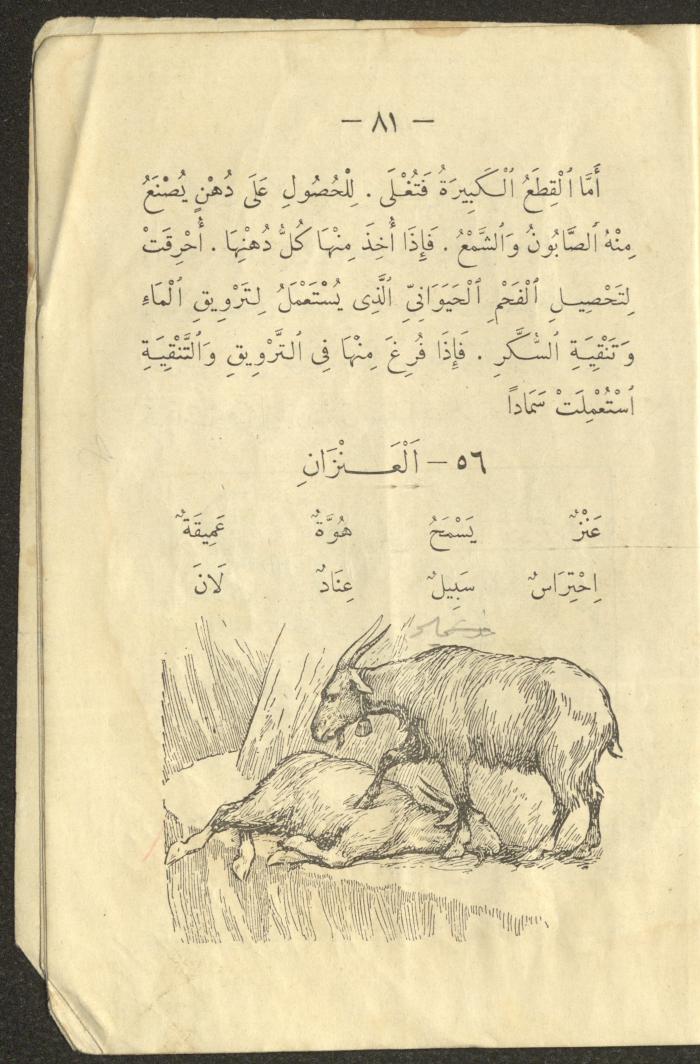 — ٨١ —
أَمَّا ٱلْقِطَعُ ٱلْكَبِيرَةُ فَتُغْلَى . لِلْحُصُولِ عَلَى دُهْنٍ يُصْنَعُ
مِنْهُ ٱلصَّابُونُ وَٱلشَّمْعُ . فَإِذَا أُخِذَ مِنْهَا كُلُّ دُهْنِهَا . أُحْرِقَتْ
لِتَحْصِيلِ ٱلْفَحْمِ ٱلْحَيَوَانِيِّ ٱلَّذِى يُسْتَعْمَلُ لِتَرْوِيقِ ٱلْمَاءِ
وَتَنْقِيَةِ ٱلسُّكَّرِ . فَإِذَا فُرِغَ مِنْهَا فِى ٱلتَّرْوِيقِ وَٱلتَّنْقِيَةِ
ٱسْتُعْمِلَتْ سَمَاداً
٥٦ – اَلْعَنْزَانِ
عَنْزٌ يَسْمَحُ هُوَّةٌ عَمِيقَةٌ
اِحْتِرَاسٌ سَبِيلٌ عِنَادٌ لَانَ